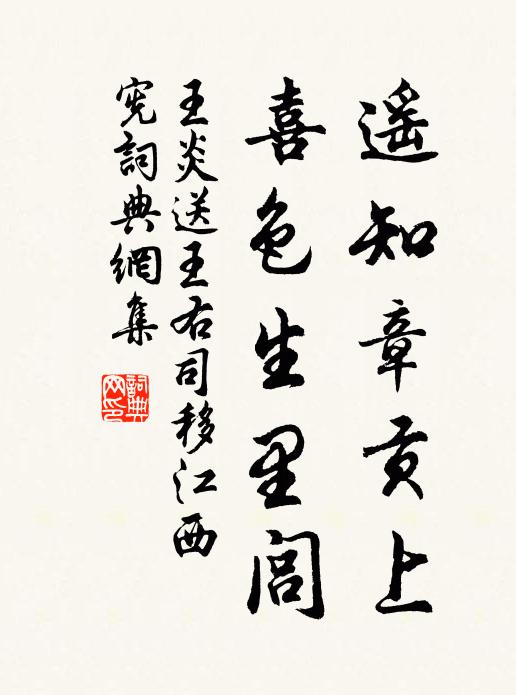 遥知章贡上
喜色生里闾
王炎送王右司移江西
宪詞典網集
詞典网印